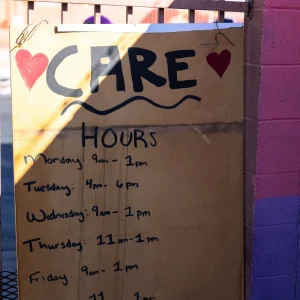 CARE
HOURS
Monday 9am - 1pm
Tuesday: 4pm - 6pm
Wednisday: 9am - 1pm
Thursday: 11am - 1pm
Friday 9am - 1pm
11 1pm